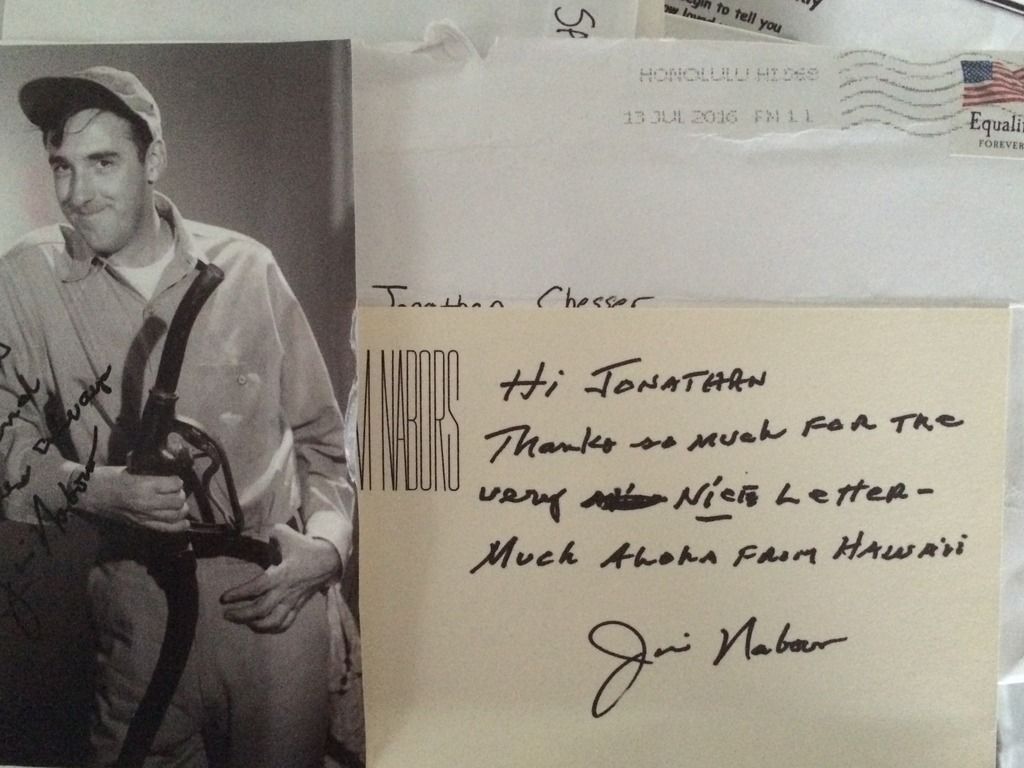 SP
ry
egin to tell you
HONOLULU HI 968
13 JUL 2016 PM 1 L
Equali
FOREVER
Jonathan Chesser
M NABORS
Hi JONATHAN
Thanks so much FOR THE
very NICE LETTER-
Much ALOHA FROM HAWAii
Jim Nabors
Jim Nabors